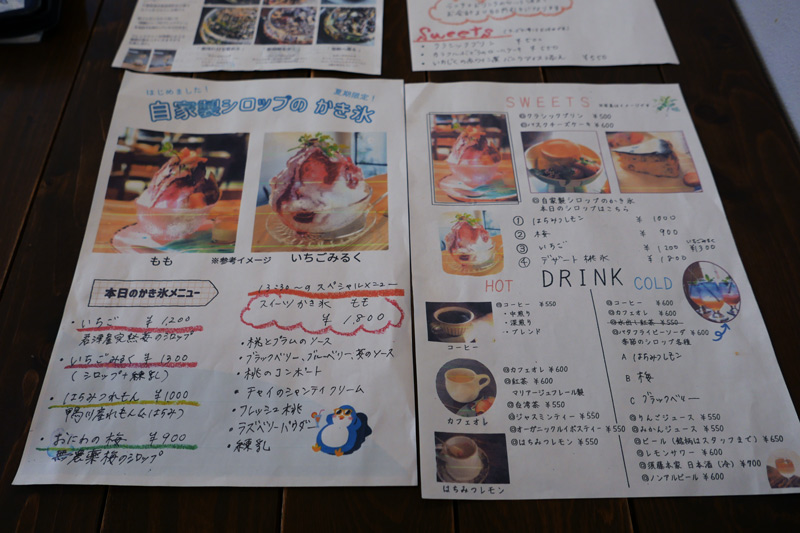 Sweets
はじめました！
夏期限定！
自家製シロップの かき氷
もも
※参考イメージ
いちごみるく
本日のかき氷メニュー
・いちご ￥1,200
・いちごみるく ￥1300
(シロップ+練乳)
・はちみつれもん ￥1000
鴨川産れもん&はちみつ
・おにわの梅 ￥900
無農薬梅のシロップ
13:30〜のスペシャルメニュー
スイーツかき氷 もも
￥1,800
・桃とグラムのソース
・ブラックベリー、ブルーベリー、英のソース
・桃のコンポート
・チャイのシャンティクリーム
・フレッシュ桃
・ラズベリーパウダー
・練乳
SWEETS
※写真はイメージです
◎クラシックプリン ￥500
◎バスクチーズケーキ ￥600
◎自家製シロップのかき氷
本日のシロップはこちら
① はちみつレモン ￥1000
② 梅 ￥900
③ いちご ￥1200
いちごみるく
￥1300
④ デザート桃氷 ￥1800
HOT
DRINK
COLD
◎コーヒー ￥550
・中煎り
・深煎り
・ブレンド
コーヒー
◎カフェオレ ￥600
◎紅茶 ￥600
マリアージュフレール製
◎台湾茶 ￥550
◎ジャスミンティー ￥550
◎オーガニックルイボスティー ￥550
◎はちみつレモン ￥550
カフェオレ
はちみつレモン
◎コーヒー ￥600
◎カフェオレ ￥600
◎水出し紅茶 ￥550
◎バタフライピーソーダ ￥600
季節のシロップ各種
A はちみつレモン
B 梅
C ブラックベリー
◎りんごジュース ￥550
◎みかんジュース ￥550
◎ビール(銘柄はスタッフまで) ￥650
◎レモンサワー ￥600
◎須藤本家 日本酒(冷) ￥700
◎ノンアルビール ￥600